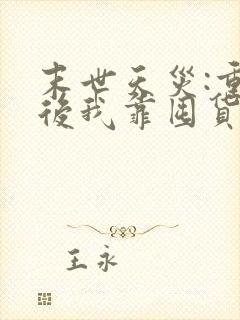 末世天災:重
後我靠囤貨
王永